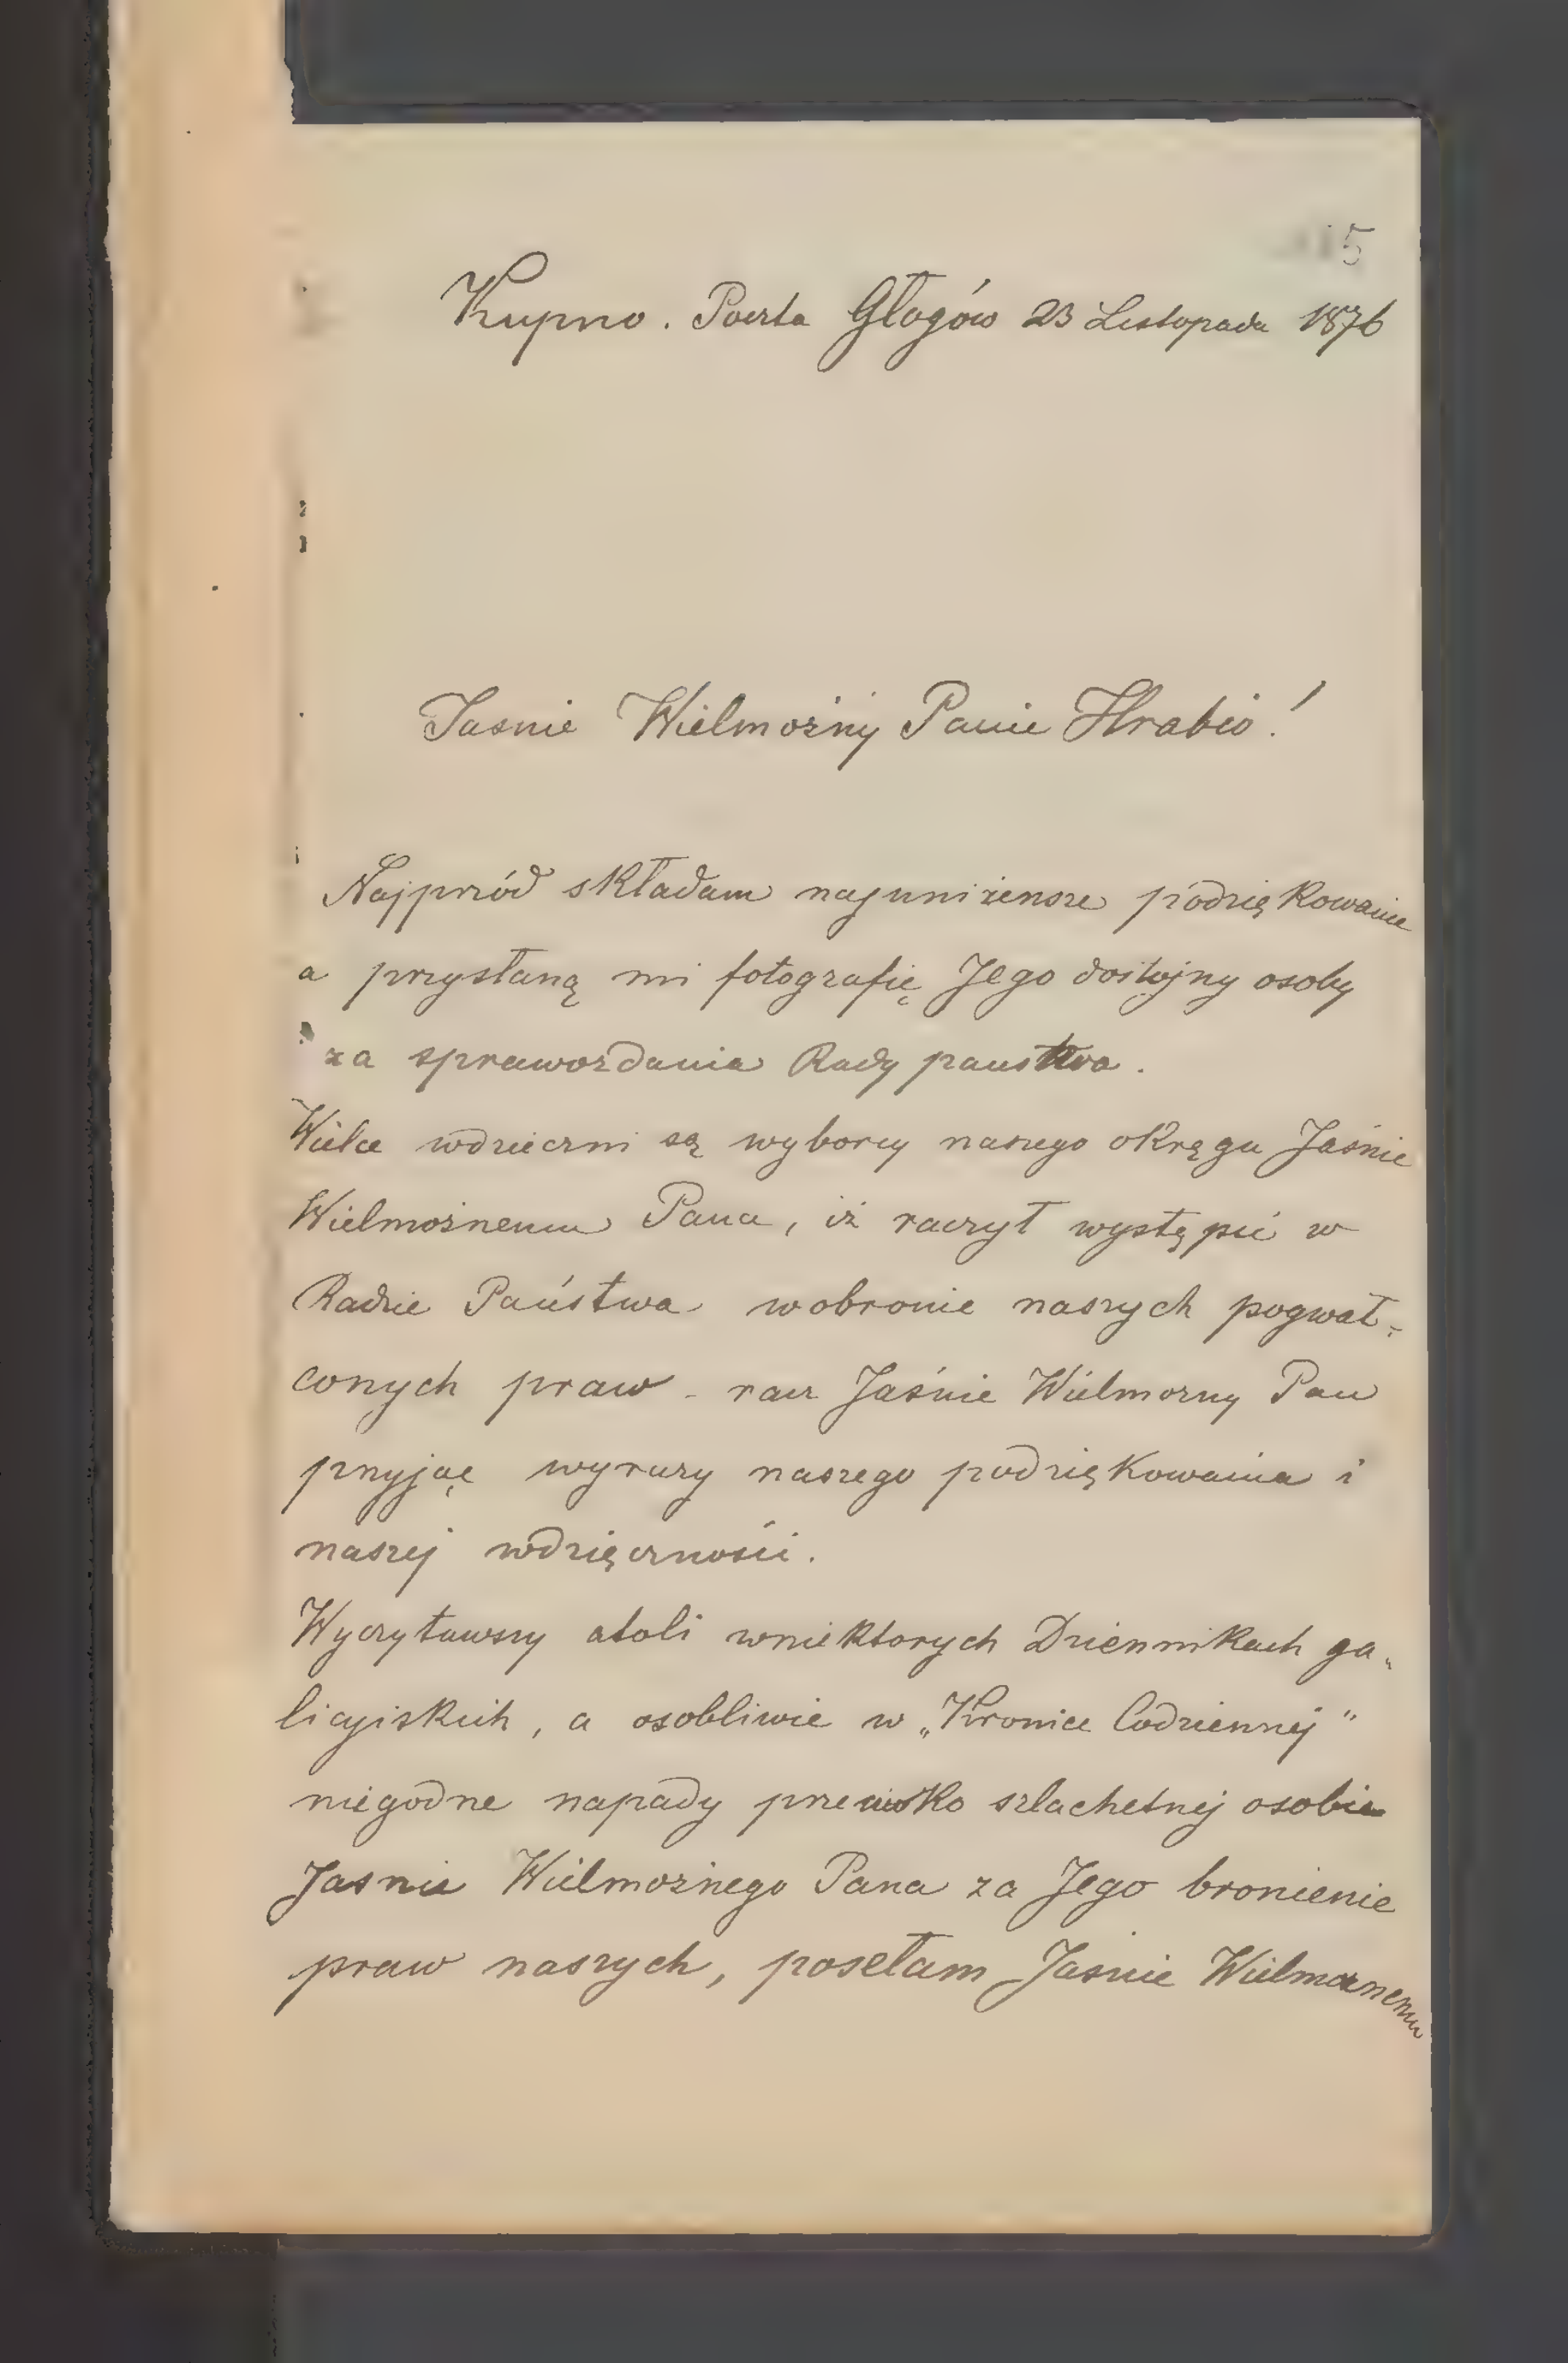 15
Kupno. Poczta Głogów 23 Listopada 1876
Jasnie Wielmożny Panie Hrabio!
Najprzód składam najuniżensze podziękowanie
a przysłaną mi fotografię Jego dostojny osoby
za sprawozdania Rady panstwa.
Wielce wdzieczni są wyborcy naszego okręgu Jaśnie
Wielmożnemu Panu, iż raczył wystąpić w
Radzie Państwa wobronie naszych pogwał-
conych praw - racz Jaśnie Wielmozny Pan
przyjąć wyrazy naszego podziękowania i
naszej wdzięczności.
Wyczytawszy atoli wniektorych Dziennikach ga-
licyiskich, a osobliwie w „Kronice Codziennej"
niegodne napady przeciwko szlachetnej osobie
Jasnie Wielmożnego Pana za Jego bronienie
praw naszych, posełam Jasnie Wielmoznemu